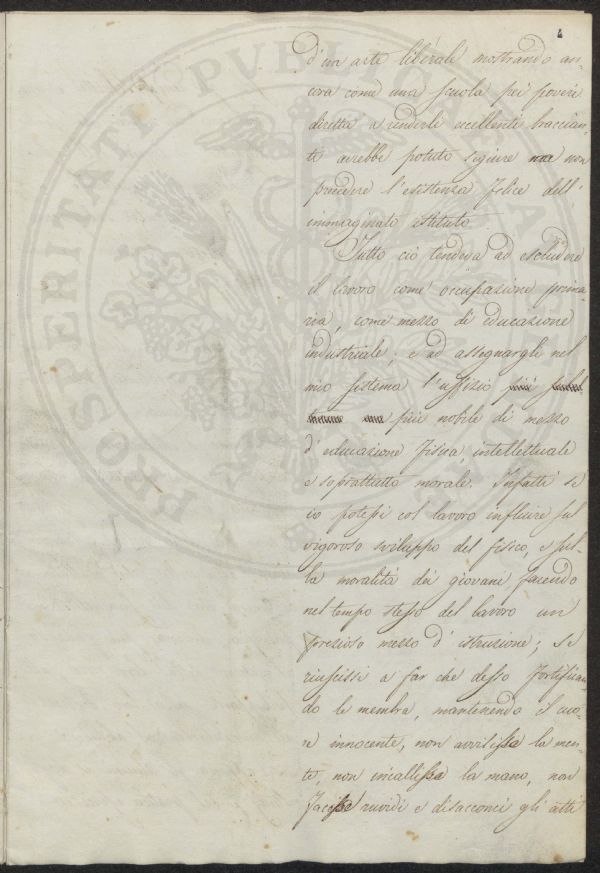 4
d'un arte liberale mostrando an-
cora come una scuola pei poveri
diretta a renderli eccellenti braccian-
ti avrebbe potuto seguire ma non
precedere l'esistenza felice dell'
immaginato istituto.
Tutto ciò tendeva ad escludere
il lavoro come occupazione prima-
ria, come mezzo di educazione
industriale; e ad assegnargli nel
mio sistema l'uffizio più
una più nobile di mezzo
d'educazione fisica, intellettuale
e soprattutto morale. Infatti se
io potessi col lavoro influire sul
vigoroso sviluppo del fisico, e sul-
la moralità dei giovani facendo
nel tempo stesso del lavoro un
prezioso mezzo d'istruzione; se
riuscissi a far che desso fortifican-
do le membra, mantenendo il cuo-
re innocente, non avvilisse la men-
te, non incallisse la mano, non
facesse ruvidi e disacconci gli atti
PROSPERITATI PUBLICAE